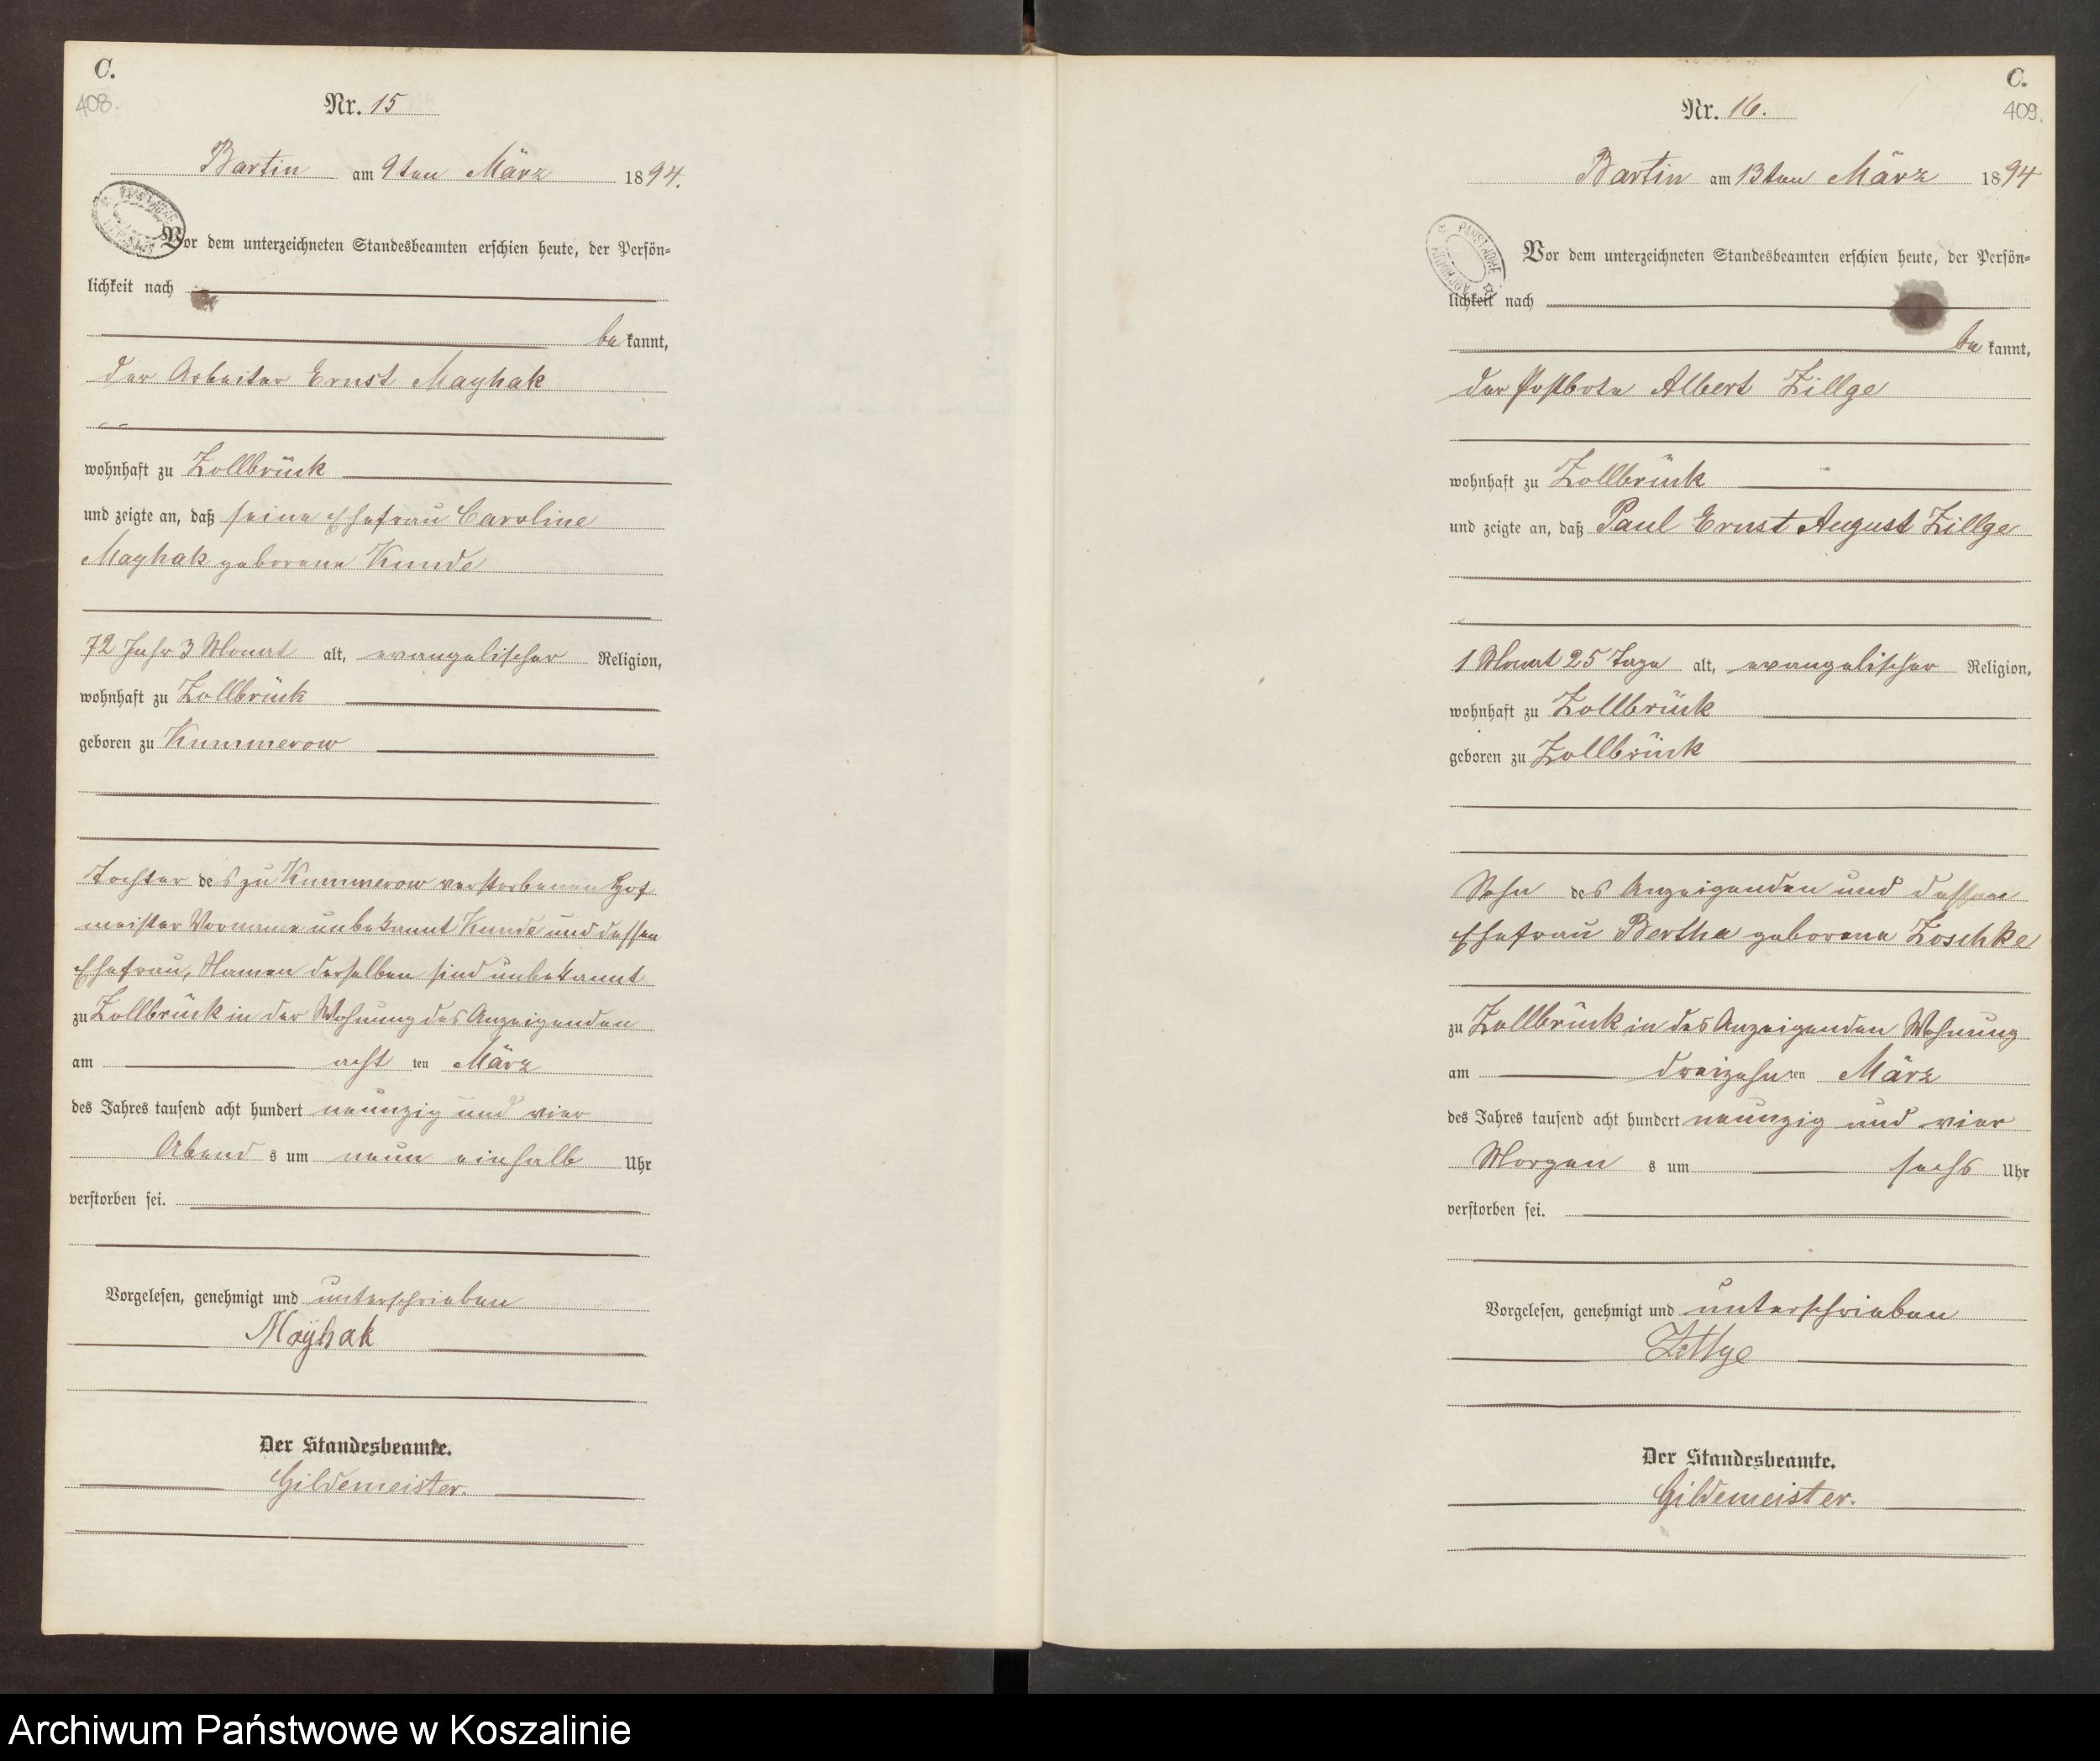 C.
408.
Nr. 15
Bartin am 9ten März 1894.
Vor dem unterzeichneten Standesbeamten erschien heute, der Persön-
lichkeit nach
bekannt,
der Arbeiter Ernst Mayhak
wohnhaft zu Zollbrück
und zeigte an, daß seine Ehefrau Caroline
Mayhak geborene Kunde
72 Jahr 3 Monat alt, evangelischer Religion,
wohnhaft zu Zollbrück
geboren zu Kummerow
Tochter des zu Kummerow verstorbenen Hof
meister Vorname unbekannt Kunde und dessen
Ehefrau, Namen derselben sind unbekannt
zu Zollbrück in der Wohnung des Anzeigenden
am acht ten März
des Jahres tausend acht hundert neunzig und vier
Abend s um neun einhalb Uhr
verstorben sei.
Vorgelesen, genehmigt und unterschrieben
Mayhak
Der Standesbeamte.
Gildemeister.
C.
409.
Nr. 16.
Bartin am 13ten März 1894
Vor dem unterzeichneten Standesbeamten erschien heute, der Persön-
lichkeit nach
bekannt,
der Postbote Albert Zillge
wohnhaft zu Zollbrück
und zeigte an, daß Paul Ernst August Zillge
1 Monat 25 Tage alt, evangelischer Religion,
wohnhaft zu Zollbrück
geboren zu Zollbrück
Sohn des Anzeigenden und dessen
Ehefrau Bertha geborene Zoschke
zu Zollbrück in des Anzeigenden Wohnung
am dreizehn ten März
des Jahres tausend acht hundert neunzig und vier
Morgen s um sechs Uhr
verstorben sei.
Vorgelesen, genehmigt und unterschrieben
Zillge
Der Standesbeamte.
Gildemeister.
Archiwum Państwowe w Koszalinie